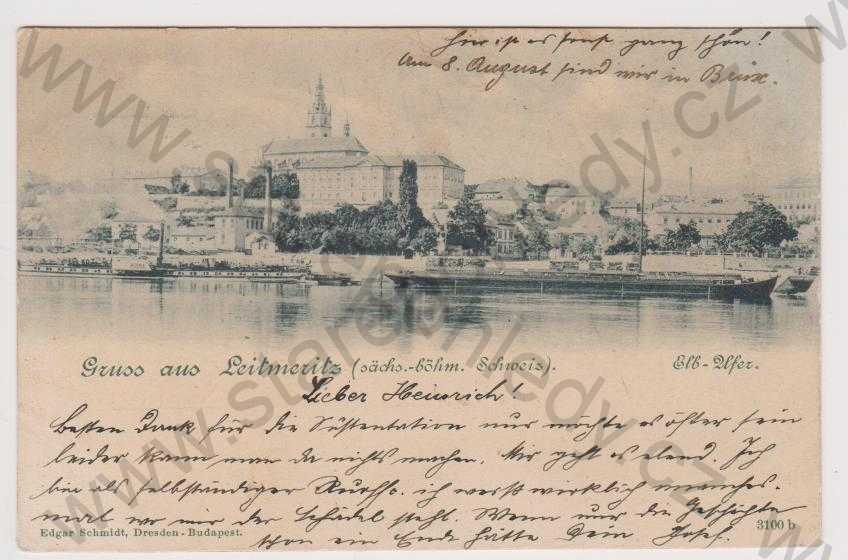 hier ist es sonst ganz schön!
Am 8. August sind wir in Brüx.
Gruss aus Leitmeritz (sächs.-böhm. Schweiz).
Elb-Ufer.
Lieber Heinrich!
Besten Dank für die Sustentation nur möchte es öfter sein
leider kann man da nichts machen. Mir geht es elend. Ich
bin als selbständiger ich weiß wirklich manches-
mal wo mir der Schädel steht. Wenn nur die Geschichte
schon ein Ende hätte Dein Josef.
Edgar Schmidt, Dresden-Budapest.
3100 b
www.starepohledy.cz